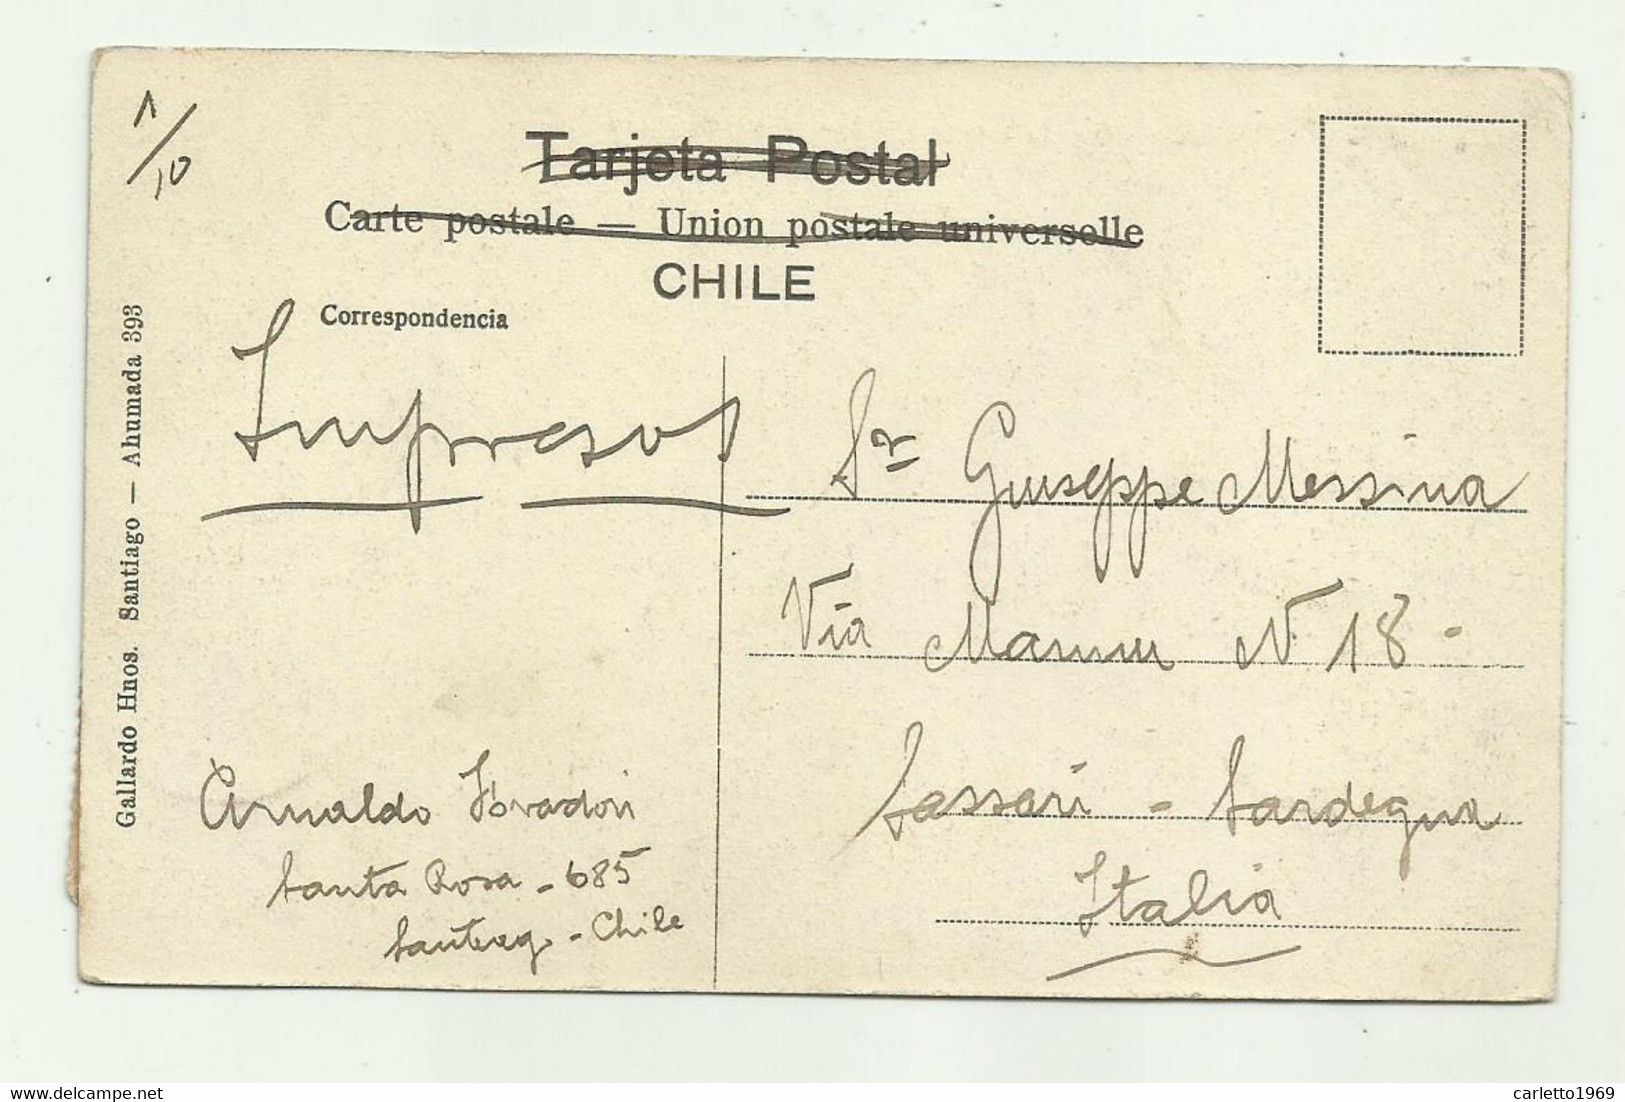 1/10
Tarjeta Postal
Carte postale — Union postale universelle
CHILE
Correspondencia
Impresos
Sr Giuseppe Messina
Via Mannu N 18 -
Sassari - Sardegna
Italia
Arnaldo
Santa Rosa - 685
Santiago - Chile
Gallardo Hnos. Santiago — Ahumada 393
carletto1969